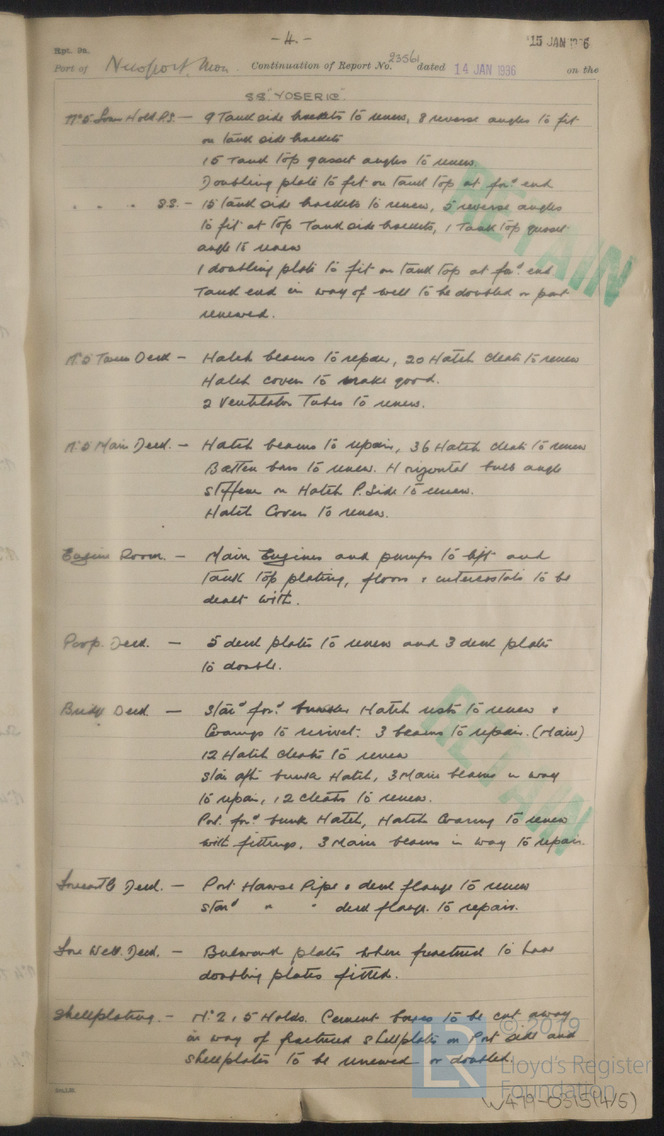 - 4. -
15 JAN 1936
Rpt. 9a.
Port of Newport, Mon. Continuation of Report No. 23561 dated 14 JAN 1936 on the
SS "YOSERIC"
No 5 Lower Hold P.S. — 9 Tank side brackets to renew, 8 reverse angles to fit
on tank side brackets
15 Tank top gusset angles to renew
Doubling plate to fit on tank top at for'd end
" " " S.S. — 15 tank side brackets to renew, 5 reverse angles
to fit at top Tank side brackets, 1 Tank top gusset
angle to renew
1 doubling plate to fit on tank top at for'd end
Tank end in way of well to be doubled or part
renewed.
No 5 Tween Deck — Hatch beams to repair, 20 Hatch cleats to renew
Hatch covers to make good.
2 Ventilator Tubes to renew.
No 5 Main Deck. — Hatch beams to repair, 36 Hatch cleats to renew
Batten bars to renew. Horizontal bulb angle
stiffener on Hatch P. Side to renew.
Hatch Covers to renew.
Engine Room. — Main Engines and pumps to lift and
tank top plating, floors & intercostals to be
dealt with.
Poop Deck. — 5 deck plates to renew and 3 deck plates
to double.
Bridge Deck — Star'd for'd bunker Hatch rests to renew &
Coamings to rerivet. 3 beams to repair. (Main)
12 Hatch cleats to renew
Star aft bunker Hatch, 3 Main beams in way
to repair, 12 cleats to renew.
Port for'd bunk Hatch, Hatch Coaming to renew
with fittings, 3 Main beams in way to repair.
Forecastle Deck. — Port Hawse Pipe & deck flange to renew
Star'd " " deck flange to repair.
Fore Well Deck. — Bulwark plates where fractured to have
doubling plates fitted.
Shellplating. — No 2 & 5 Holds. Cement boxes to be cut away
in way of fractured shellplates on Port side and
shellplates to be renewed or doubled.
RETAIN
RETAIN
LR
© 2019
Lloyd's Register
Foundation
W479-0315(4/5)